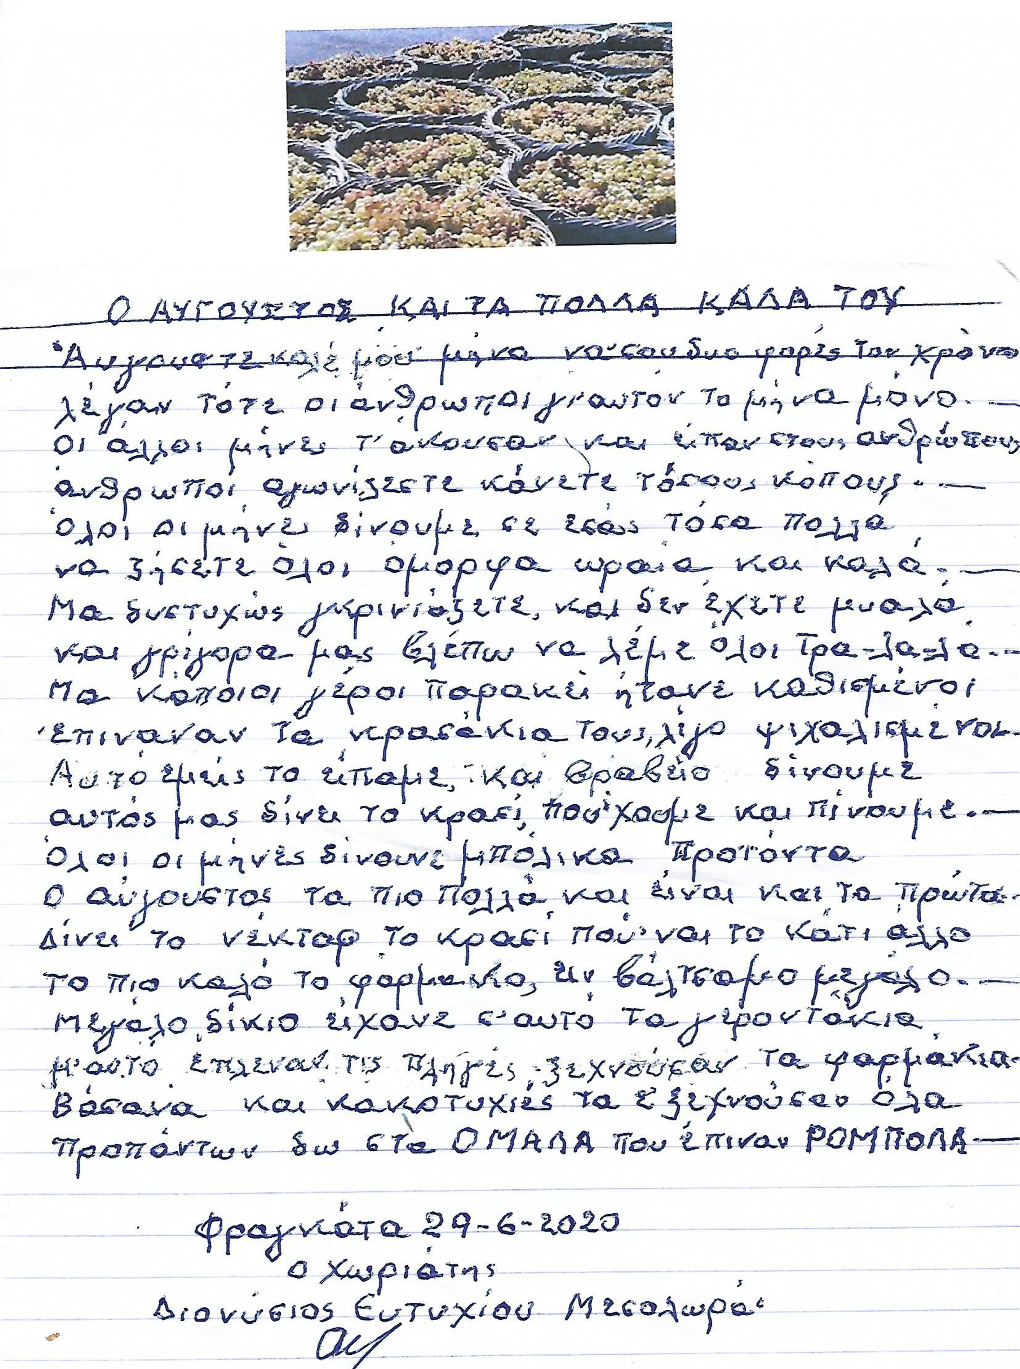 Ο ΑΥΓΟΥΣΤΟΣ ΚΑΙ ΤΑ ΠΟΛΛΑ ΚΑΛΑ ΤΟΥ
Αυγουστε καλέ μου μήνα να'σου δυο φορές τον χρόνο
λέγαν τότε οι άνθρωποι γι'αυτον το μήνα μόνο.—
Οι άλλοι μήνες τ'άκουσαν και είπαν στους ανθρώπους
άνθρωποι αγωνίζεστε κάνετε τόσους κόπους.—
Όλοι οι μήνες δίνουμε σε εσάς τόσα πολλά,
να ζήσετε όλοι ομορφα ωραία και καλά.—
Μα δυστυχώς γκρινιάζετε, και δεν έχετε μυαλο
και γρίγορα μας βλέπω να λέμε όλοι Τρα-λα-λα.—
Μα κάποιοι γέροι παρακεί ήτανε καθισμένοι
έπιναναν τα κρασάκια τους, λίγο ψιχαλισμένοι.
Αυτό εμείς το είπαμε, και βραβείο δίνουμε
αυτός μας δίνει το κρασί, που'χουμε και πίνουμε.—
Όλοι οι μήνες δίνουνε μπόλικα προϊόντα
Ο αύγουστος τα πιο πολλά και είναι και τα πρώτα.
Δίνει το νέκταρ το κρασί πού'ναι το κάτι άλλο
το πιο καλό το φάρμακο, εν βάλτσαμο μεγάλο.—
Μεγάλο δίκιο είχανε σ'αυτό τα γεροντάκια
μ'αυτό έπλεναν τις πληγές, ξεχνούσαν τα φαρμάκια.
Βάσανα και κακοτυχίες τα ξεχνούσαν όλα
προπάντων δω στα ΟΜΑΛΑ που έπιναν ΡΟΜΠΟΛΑ—
Φραγκάτα 29-6-2020
ο χωριάτης
Διονύσιος Ευτυχίου Μεσολωρά